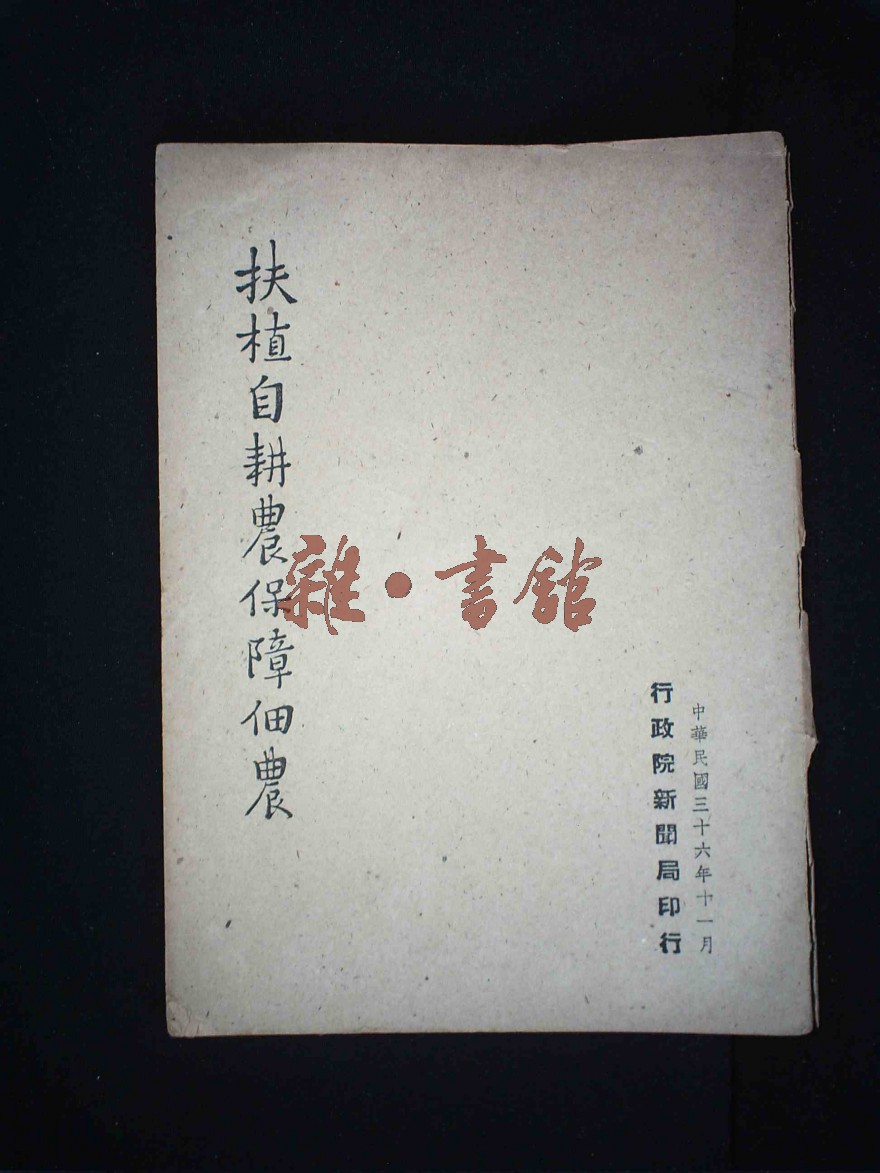 扶植自耕農保障佃農
雜·書館
中華民國三十六年十一月
行政院新聞局印行